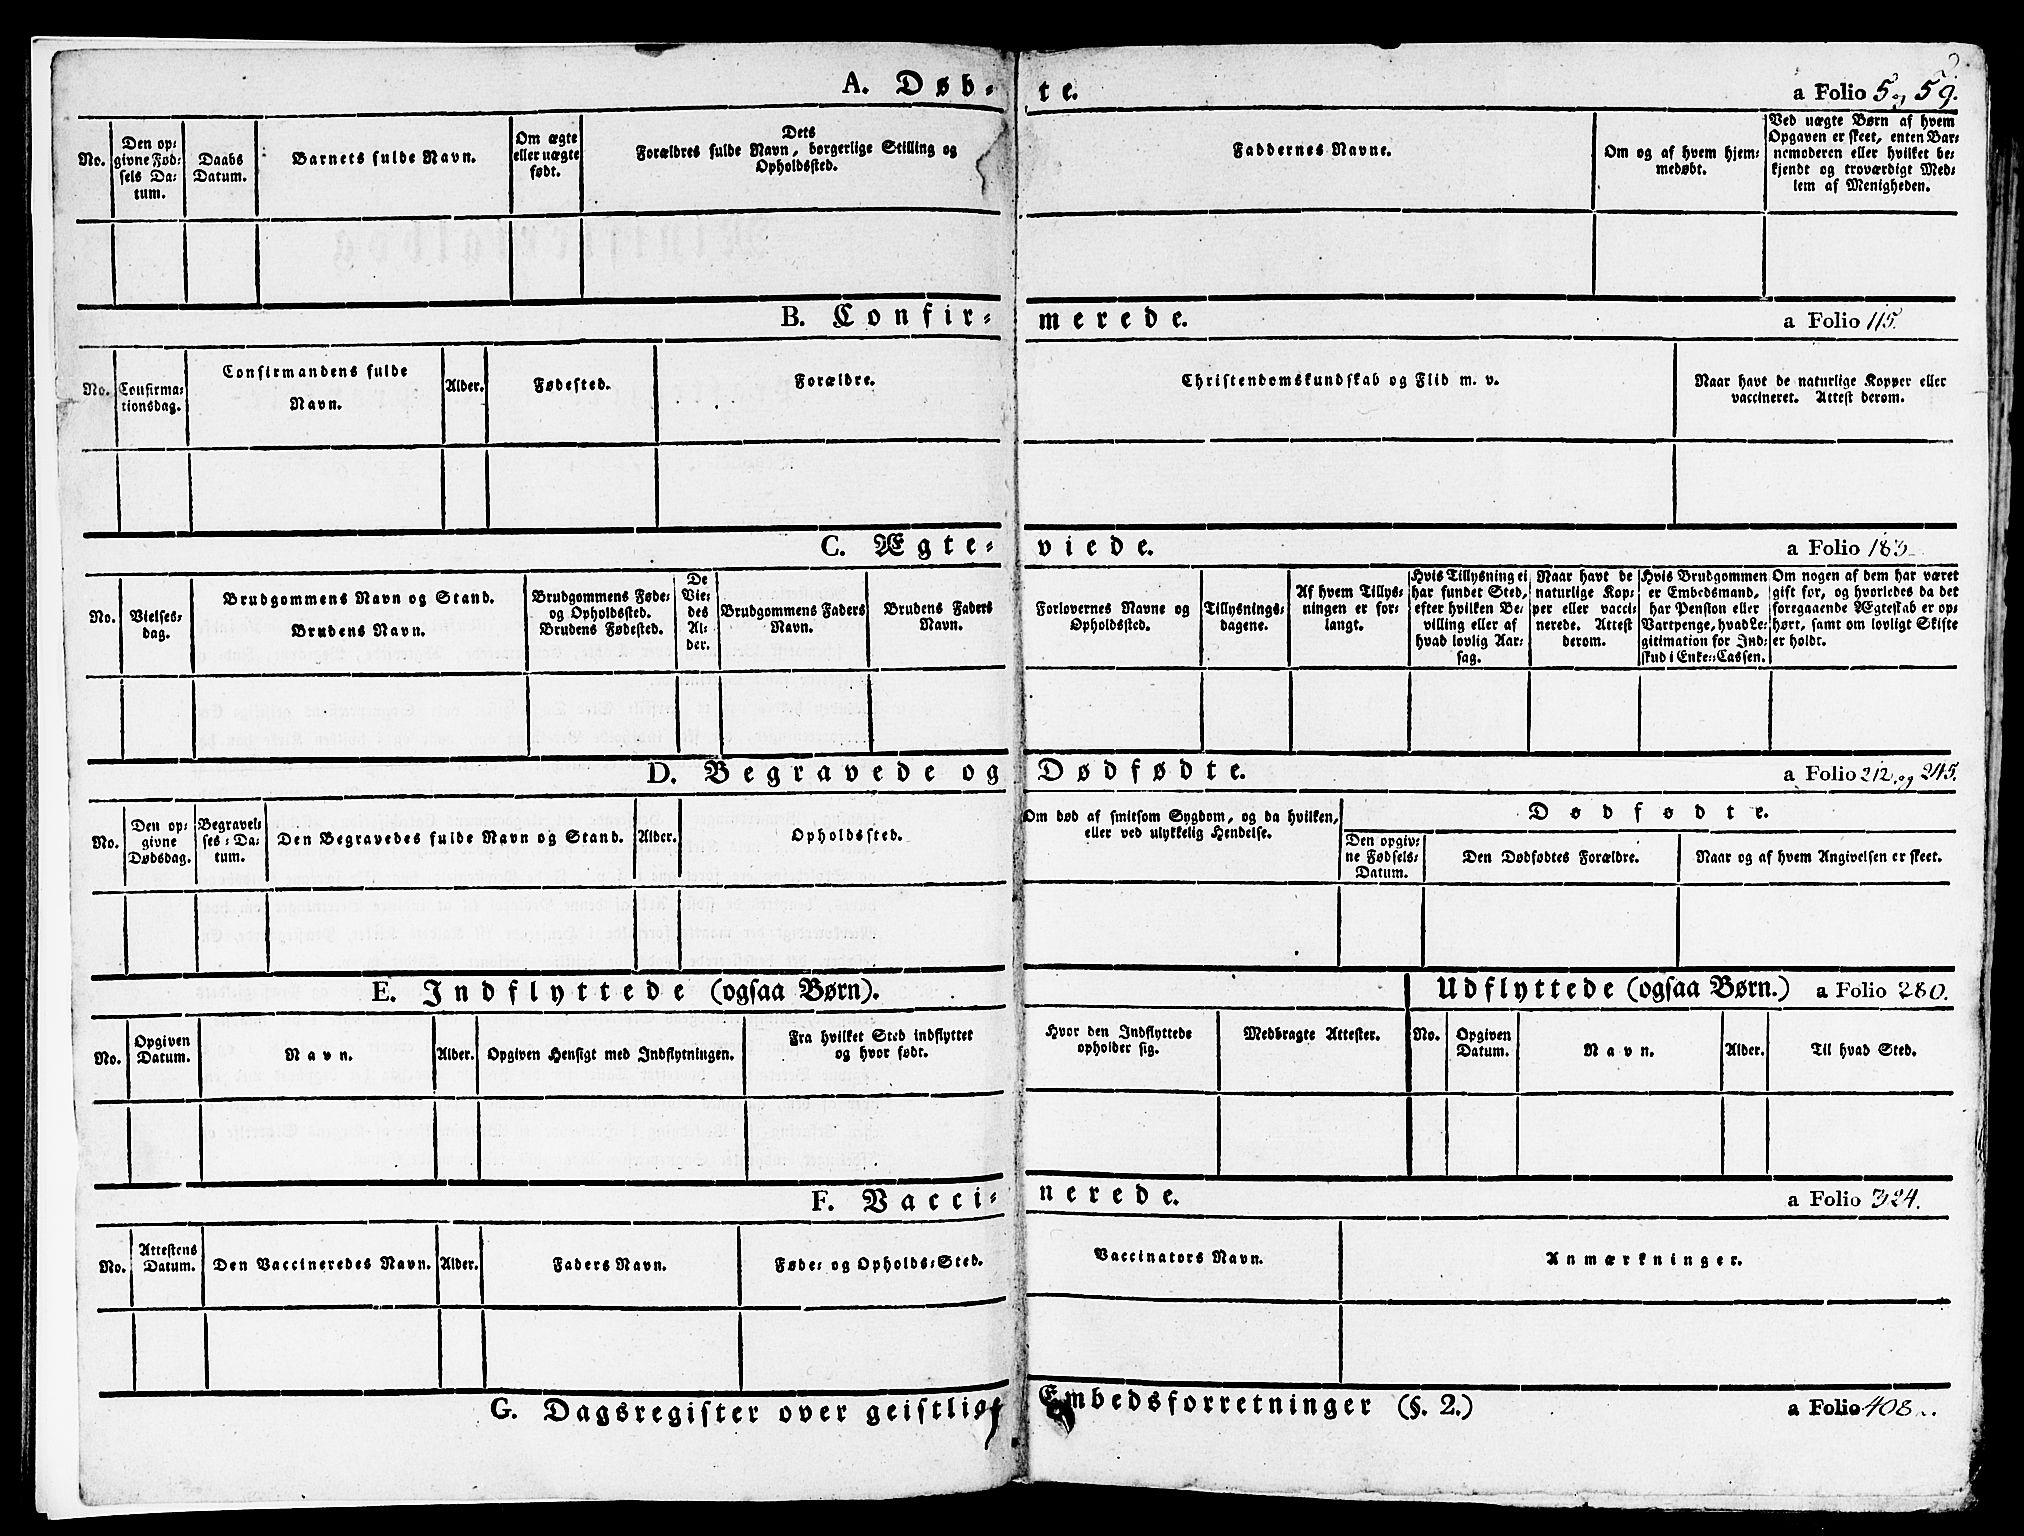 A. Døb-
te.
a Folio 5 og 59.
No.
Den op-
givne Fød-
sels Da-
tum.
Daabs
Datum.
Barnets fulde Navn.
Om ægte
eller uægte
født.
Dets
Forældres fulde Navn, borgerlige Stilling og
Opholdssted.
Faddernes Navne.
Om og af hvem hjem-
medøbt.
Ved uægte Børn af hvem
Opgaven er skeet, enten Bar-
nemoderen eller hvilket be-
kjendt og troværdigt Med-
lem af Menigheden.
B. Confir-
merede.
a Folio 115.
No.
Confirma-
tionsdag.
Confirmandens fulde
Navn.
Alder.
Fødested.
Forældre.
Christendomskundskab og Flid m. v.
Naar havt de naturlige Kopper eller
vaccineret. Attest derom.
C. Ægte-
viede.
a Folio 183
No.
Vielses-
dag.
Brudgommens Navn og Stand.
Brudens Navn.
Brudgommens Føde-
og Opholdssted.
Brudens Fødested.
De
Vie-
des
Al-
der.
Brudgommens Faders
Navn.
Brudens Faders
Navn.
Forlovernes Navne og
Opholdssted.
Tillysnings-
dagene.
Af hvem Tillys-
ningen er for-
langt.
Hvis Tillysning ei
har fundet Sted,
efter hvilken Be-
villing eller af
hvad lovlig Aar-
sag.
Naar havt de
naturlige Kop-
per eller vacci-
nerede. Attest
derom.
Hvis Brudgommen
er Embedsmand,
har Pension eller
Vartpenge, hvad Le-
gitimation for Ind-
skud i Enke-Cassen.
Om nogen af dem har været
gift før, og hvorledes da det
foregaaende Ægteskab er op-
hørt, samt om lovligt Skifte
er holdt.
D. Begravede og
Dødfødte.
a Folio 212 og 245.
No.
Den op-
givne
Dødsdag.
Begravel-
ses-Da-
tum.
Den Begravedes fulde Navn og Stand.
Alder.
Opholdssted.
Om død af smitsom Sygdom, og da hvilken,
eller ved ulykkelig Hendelse.
Dødfødte.
Den opgiv-
ne Fødsels-
Datum.
Den Dødfødtes Forældre.
Naar og af hvem Angivelsen er skeet.
E. Indflyttede (ogsaa Børn).
Udflyttede (ogsaa Børn.)
a Folio 280.
No.
Opgiven
Datum.
Navn.
Alder.
Opgiven Hensigt med Indflytningen.
Fra hvilket Sted indflyttet
og hvor født.
Hvor den Indflyttede
opholder sig.
Medbragte Attester.
No.
Opgiven
Datum.
Navn.
Alder.
Til hvad Sted.
F. Vacci-
nerede.
a Folio 324.
No.
Attestens
Datum.
Den Vaccineredes Navn.
Alder.
Faders Navn.
Føde- og Opholds-Sted.
Vaccinators Navn.
Anmærkninger.
G. Dagsregister over geistlige
Embedsforretninger (§. 2.)
a Folio 408